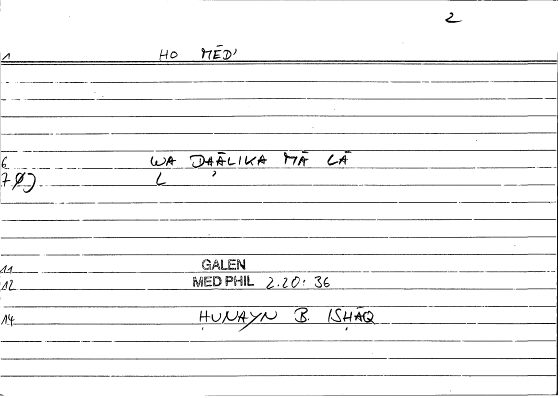 2
1 HO MĒD'
6 WA DAĀLIKA MĀ LĀ
7 Ø) L
11 GALEN
12 MED PHIL 2.20: 36
14 ḤUNAYN B. ISḤĀQ